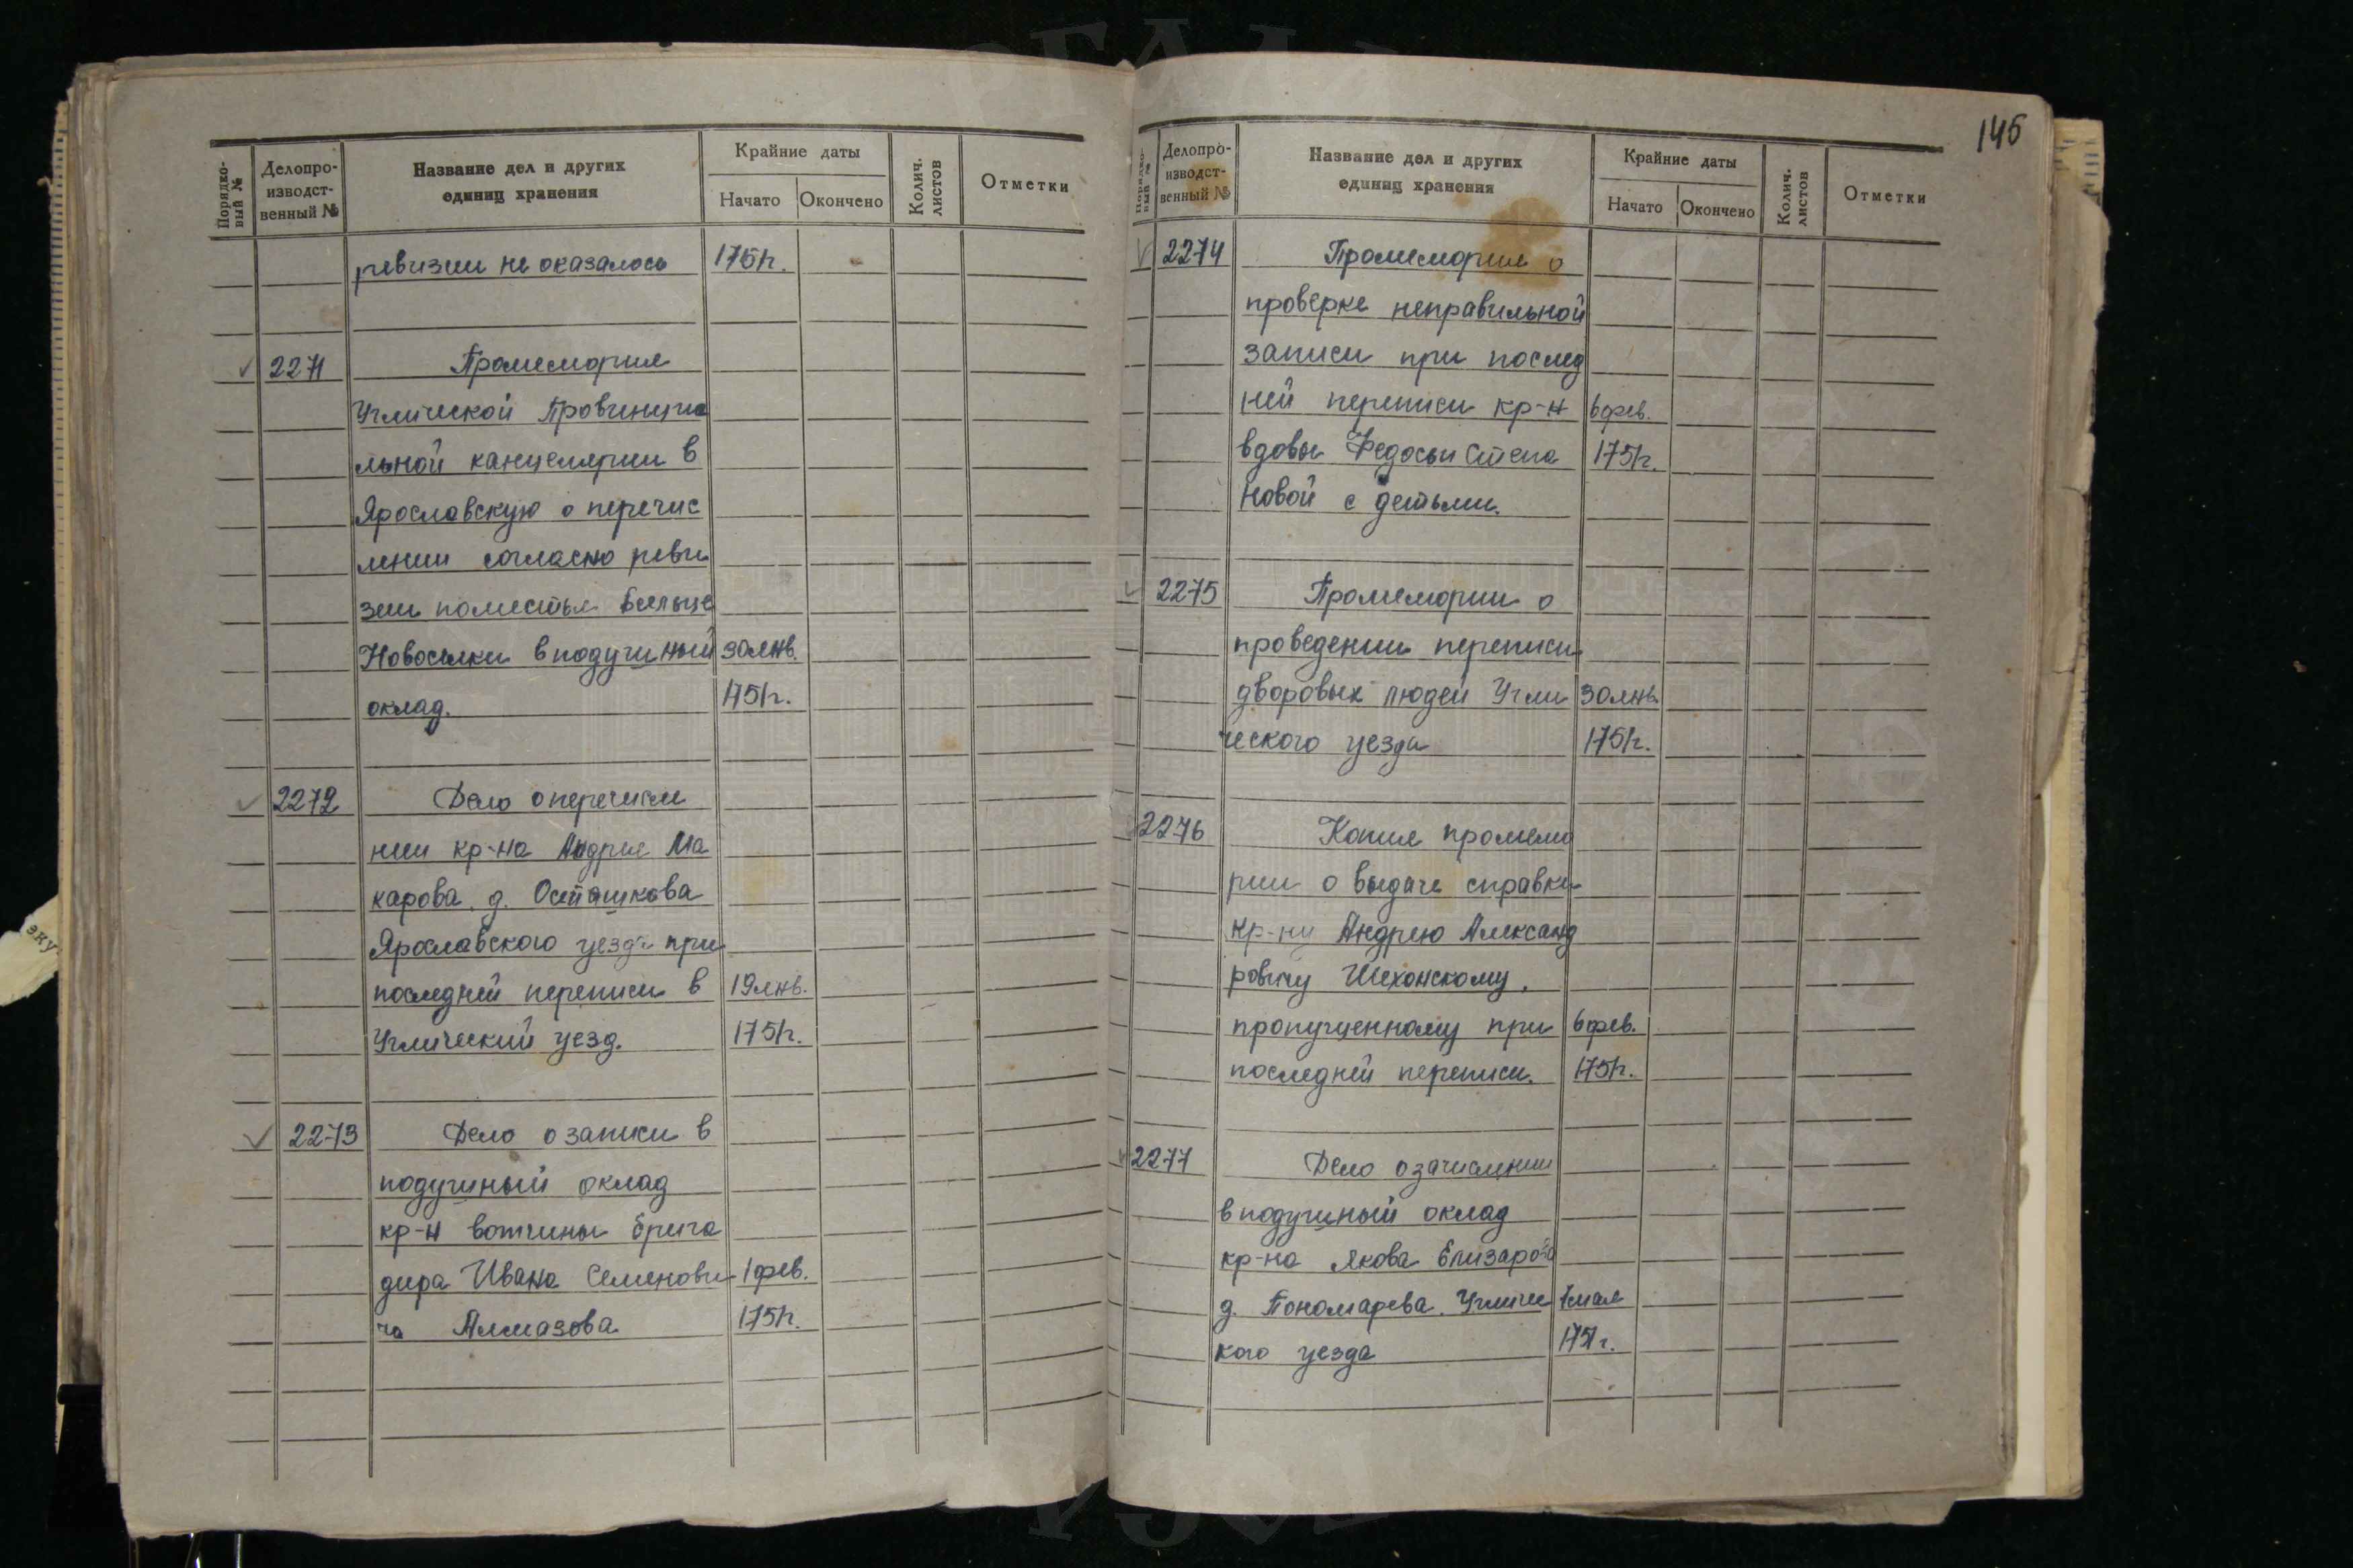 Порядко-вый №
Делопро-изводст-венный №
Название дел и других единиц хранения
Крайние даты
Начато
Окончено
Колич. листов
Отметки
ревизии не оказалось 1751г. -
✓ 2271 Промемория
Угличской Провинциа
льной канцелярии в
Ярославскую о перечис
лении согласно реви
зии поместья Бельце
Новоселки в подушный 30 янв.
оклад. 1751г.
✓ 2272 Дело о перечисле
нии кр-на Андрея Ма
карова, д. Осташкова
Ярославского уезда при
последней переписи в 19 янв.
Угличский уезд. 1751г.
✓ 2273 Дело о записи в
подушный оклад
кр-н вотчины брига
дира Ивана Семенови 1 фев.
ча Алмазова 1751г.
145
Порядко-вый №
Делопро-изводст-венный №
Название дел и других единиц хранения
Крайние даты
Начато
Окончено
Колич. листов
Отметки
✓ 2274 Промемория о
проверке неправильной
записи при послед
ней переписи кр-н 6 фев.
вдовы Федосьи Степа 1751г.
новой с детьми.
✓ 2275 Промемории о
проведении переписи
дворовых людей Угли 30 янв.
ческого уезда 1751г.
2276 Копия промемо
рии о выдаче справки
кр-ну Андрею Александ
ровичу Шехонскому,
пропущенному при 6 фев.
последней переписи. 1751г.
✓ 2277 Дело о зачислении
в подушный оклад
кр-на Якова Елизарова
д. Пономарева, Угличс мая
кого уезда 1751г.